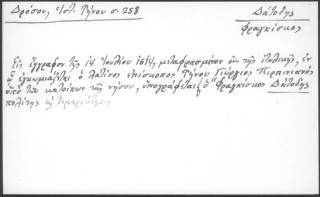 Δρόσου, Ἱστ. Τήνου σ. 258
Δάτοδης
Φραγκίσκος
Εἰς ἔγγραφον τῆς 14 Ἰουλίου 1614, μεταφρασμένον ἐκ τῆς ἰταλικῆς, ἐν
ᾧ ἐγκωμιάζεται ὁ λατῖνος ἐπίσκοπος Τήνου Γεώργιος Περπινιανός
ὑπὸ τῶν κατοίκων τῆς νήσου, ὑπογράφεται ὁ "Φραγκίσκος Δάτοδης
πολίτης